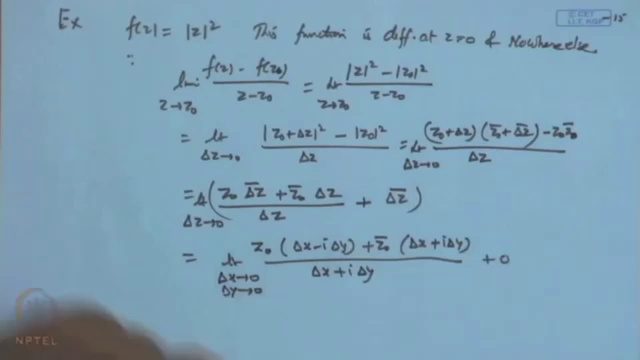 © CET
I.I.T. KGP
15
Ex f(z) = |z|² This function is diff. at z=0 & Nowhere else.
∵ lim_{z→z₀} (f(z) - f(z₀))/(z-z₀) = lt_{z→z₀} (|z|² - |z₀|²)/(z-z₀)
= lt_{Δz→0} (|z₀+Δz|² - |z₀|²)/Δz = lt_{Δz→0} ((z₀+Δz)(z̄₀+Δ̄z̄) - z₀z̄₀)/Δz
= lt_{Δz→0} ((z₀ Δ̄z̄ + z̄₀ Δz)/Δz + Δ̄z̄)
= lt_{Δx→0 Δy→0} (z₀(Δx-iΔy) + z̄₀(Δx+iΔy))/(Δx+iΔy) + 0
NPTEL